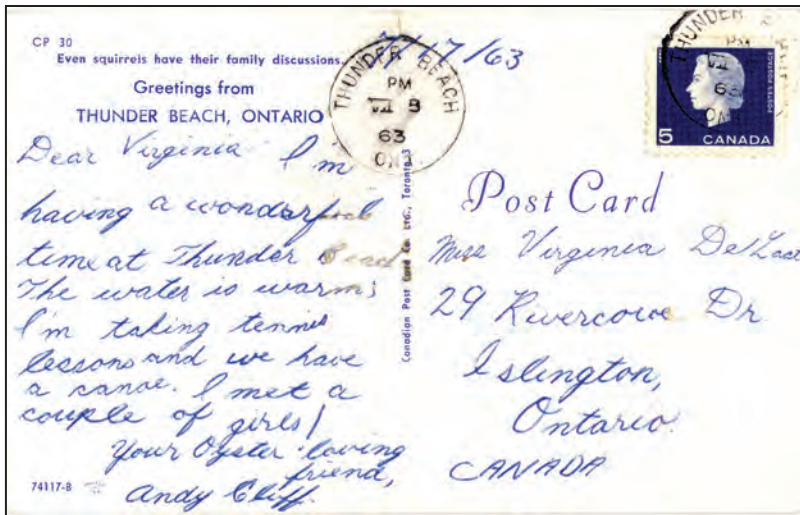 CP 30
Even squirrels have their family discussions.
Greetings from
THUNDER BEACH, ONTARIO
7/17/63
THUNDER BEACH
PM
VII 8
63
ONT.
THUNDER
PM
VII
63
ON
POSTES POSTAGE
5 CANADA
Dear Virginia I'm
having a wonderful
time at Thunder Beach
The water is warm;
I'm taking tennis
lessons and we have
a canoe. I met a
couple of girls!
Your Oyster-loving
friend,
Andy Cliff.
74117-B
Canadian Post Card Co. Ltd., Toronto 3
Post Card
Miss Virginia
29 Rivercove Dr
Islington,
Ontario.
CANADA